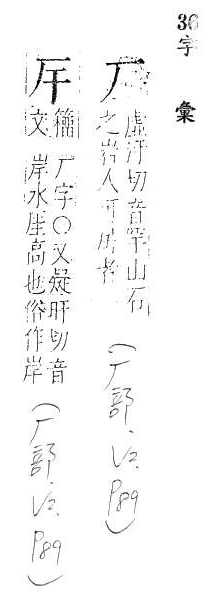 36
字彙
厂 虛汗切音罕山石
之崖人可居者
(厂部.1/2.P89)
厈 籀文
厂字○又疑旰切音
岸水崖高也俗作岸
(厂部.1/2.P89)